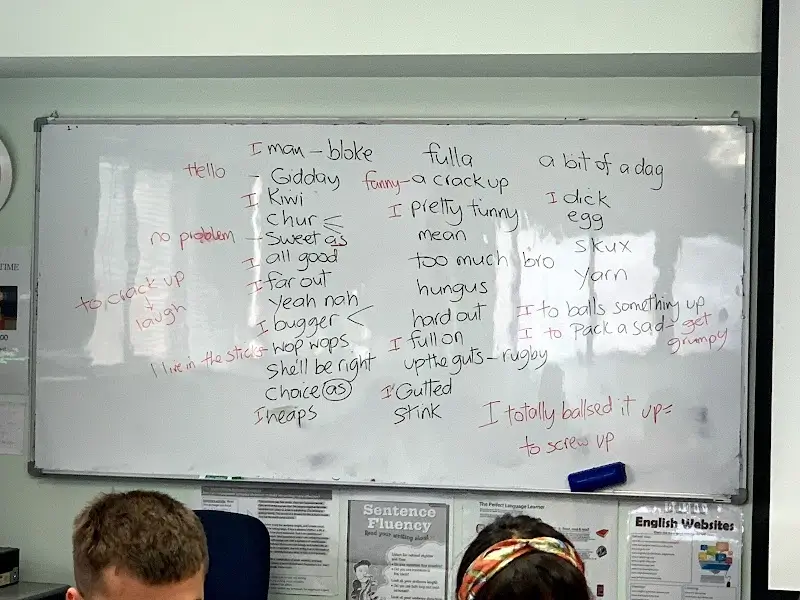 I man - bloke
Hello - Gidday
I Kiwi
chur <
no problem - Sweet as
I all good
I far out
to crack up
↓
laugh
yeah nah
I bugger <
I live in the sticks - wop wops
she'll be right
choice (as)
I heaps
fulla
funny - a crack up
I pretty funny
mean
too much bro
hungus
hard out
I full on
up the guts - rugby
I Gutted
stink
a bit of a dag
I dick
egg
skux
yarn
I to balls something up
I to Pack a sad - get grumpy
I totally ballsed it up =
to screw up
TIME
Sentence
Fluency
Read your writing aloud!
The Perfect Language Learner
English Websites